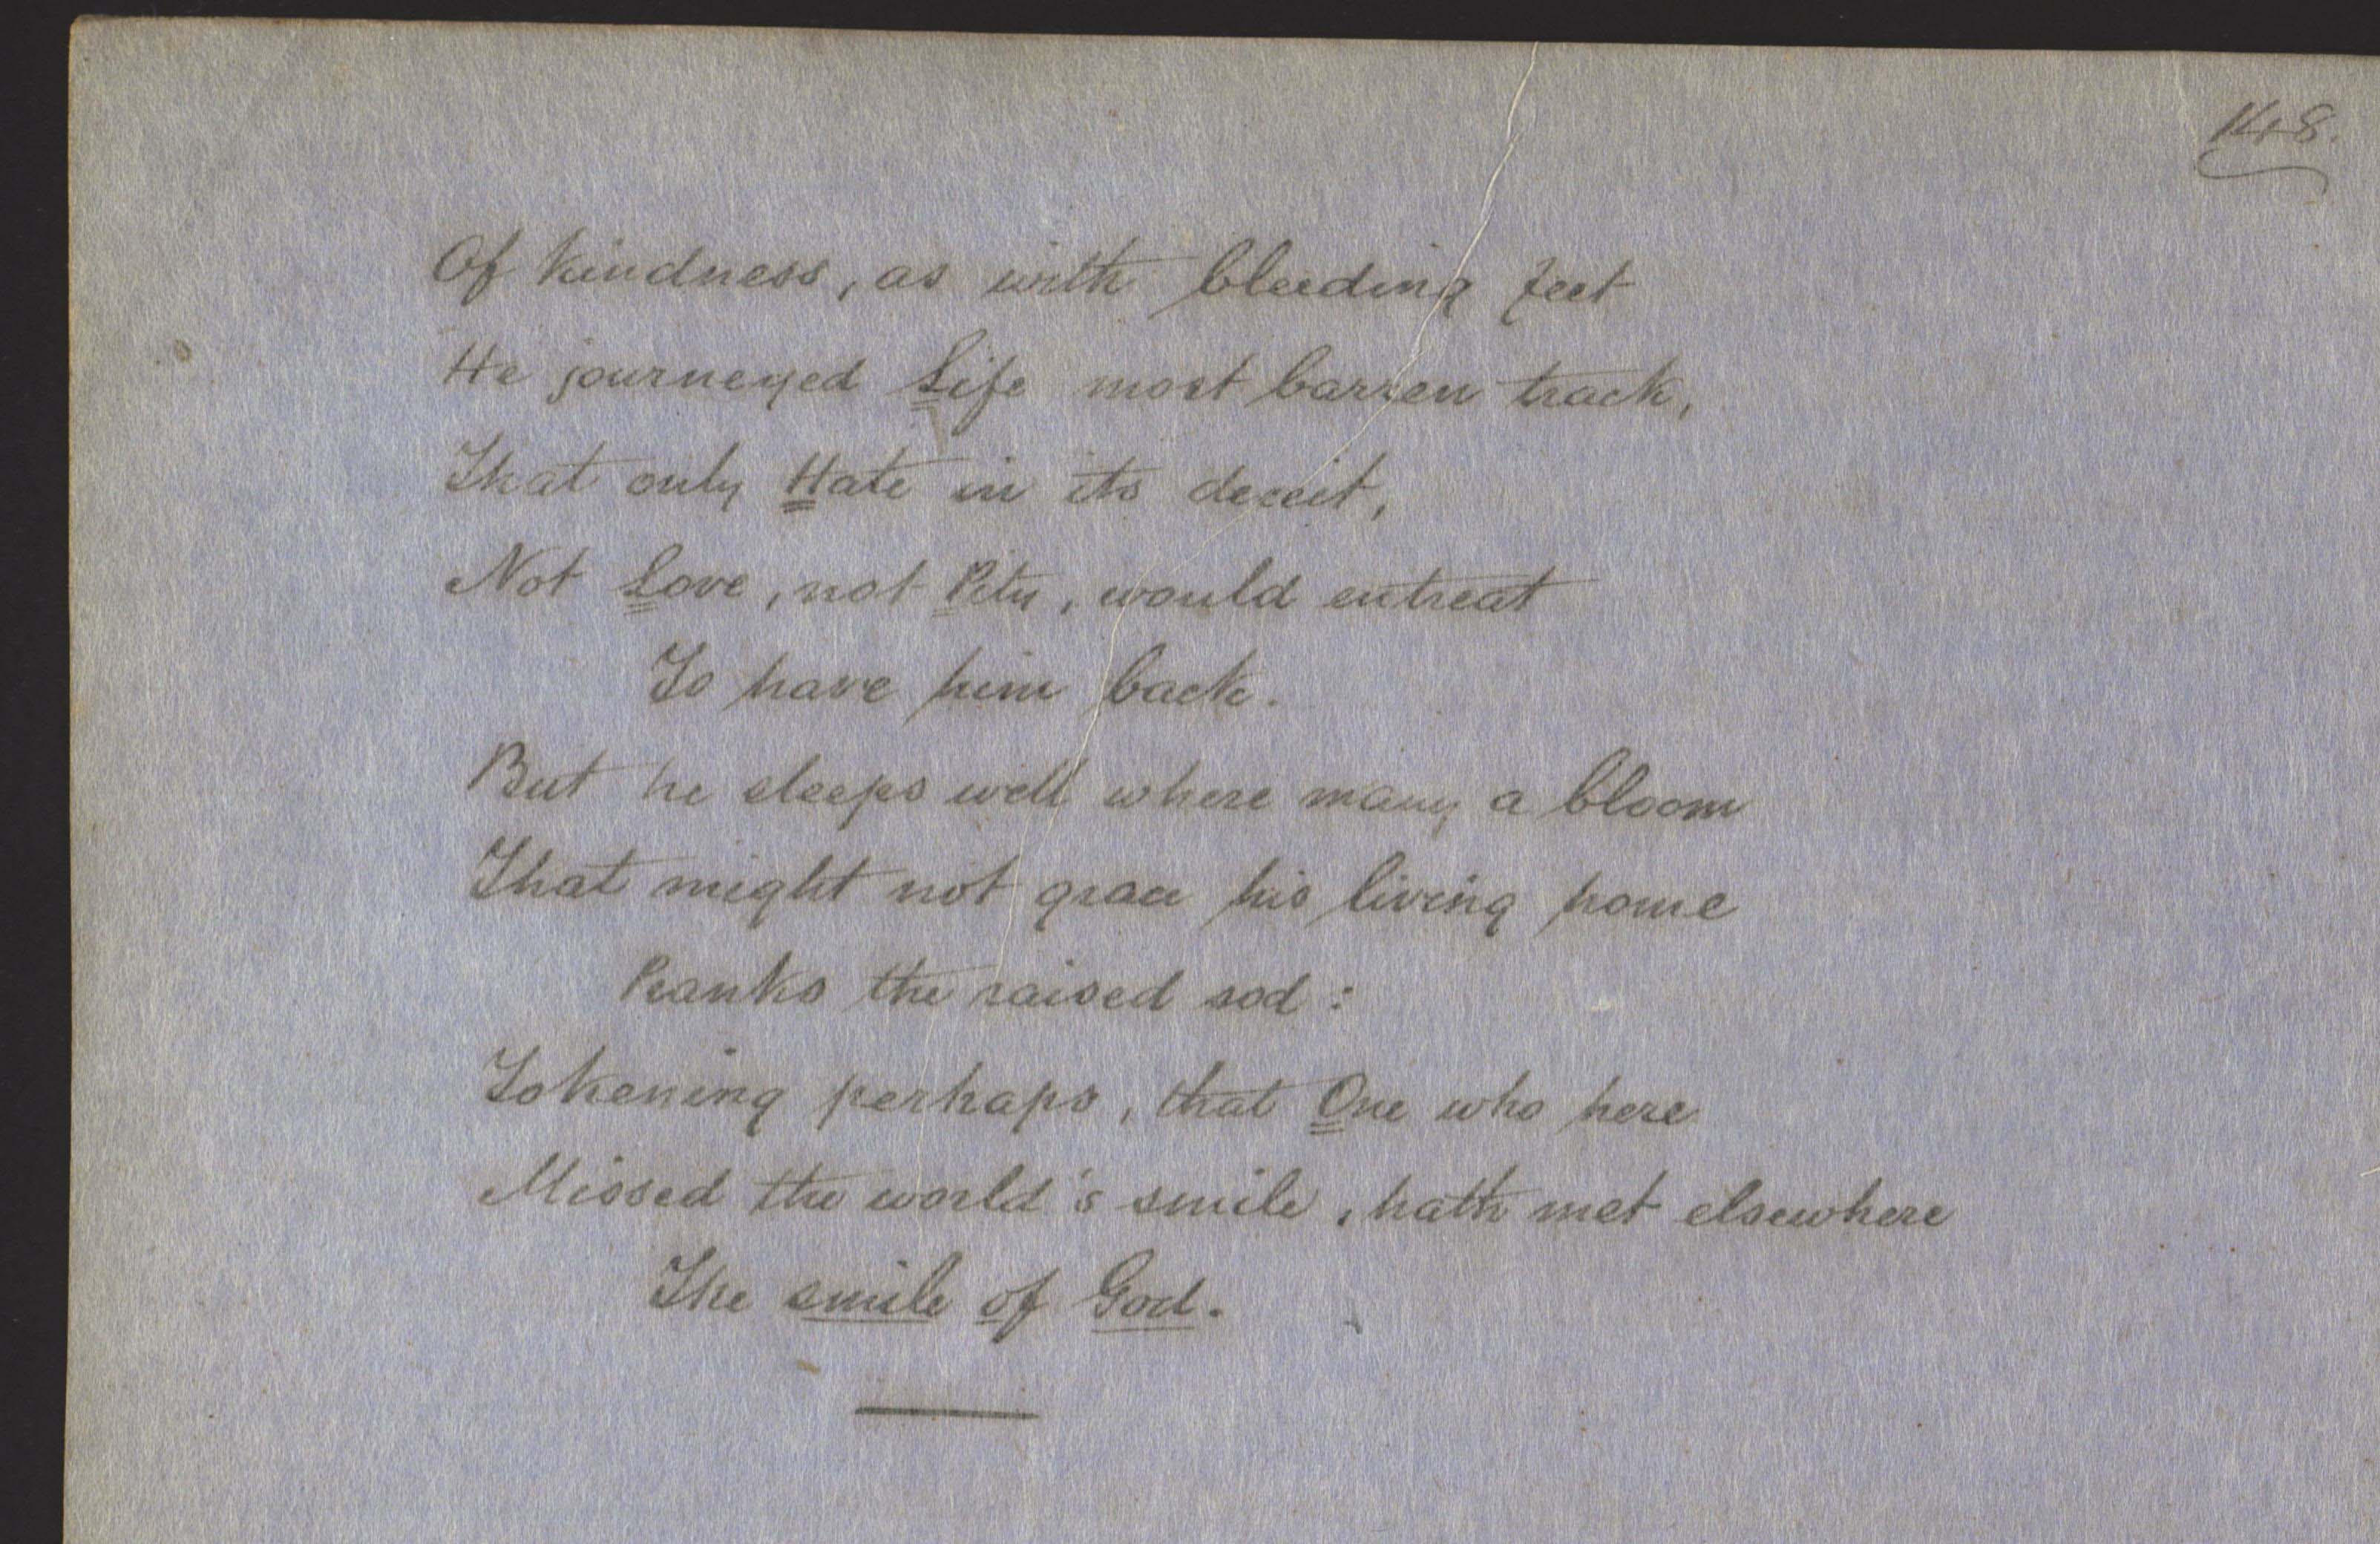 148.
Of kindness, as with bleeding feet
He journeyed Life most barren track,
That only Hate in its deceit,
Not Love, not Pity, would entreat
To have him back.
But he sleeps well where many a bloom
That might not grace his living home
Pranks the raised sod:
Tokening perhaps, that One who here
Missed the world's smile, hath met elsewhere
The smile of God.